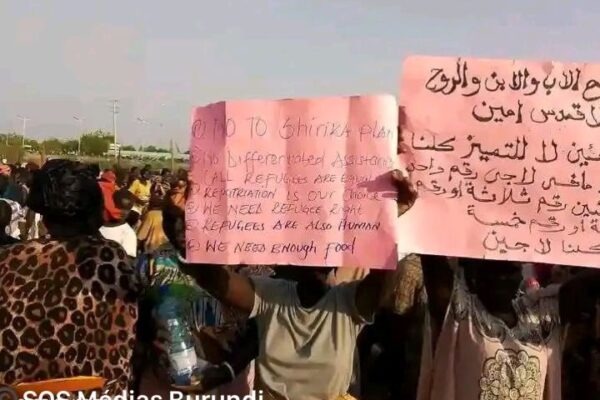 NO TO Shirika PLAN
NO Differentiated Assistance
ALL REFUGEES ARE EQUAL
REPATRIATION IS OUR Choice
WE NEED REFUGEE Right
REFUGEES ARE Also HUMAN
WE NEED ENOUGH food
الاب والابن والروح
القدس امين
لا للتميز كلنا
لاجئ رقم واحد
رقم ثلاثة او رقم
او رقم خمسة
كلنا لاجئين
SOS Médias Burundi